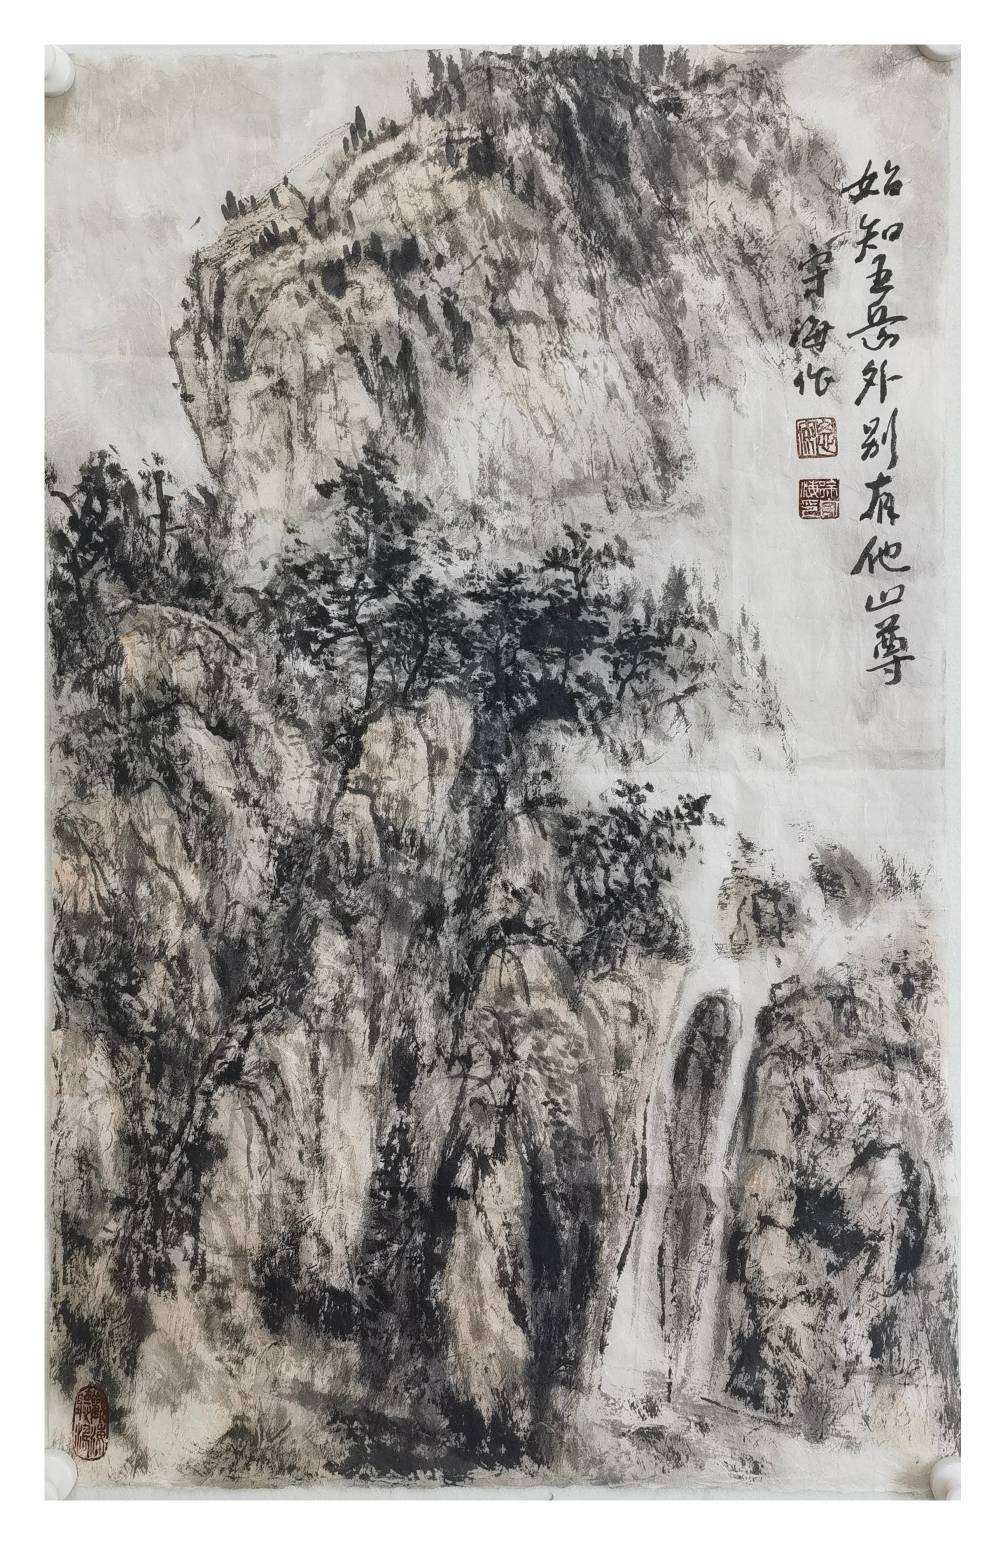 始知五岳外别有他山尊
守海作